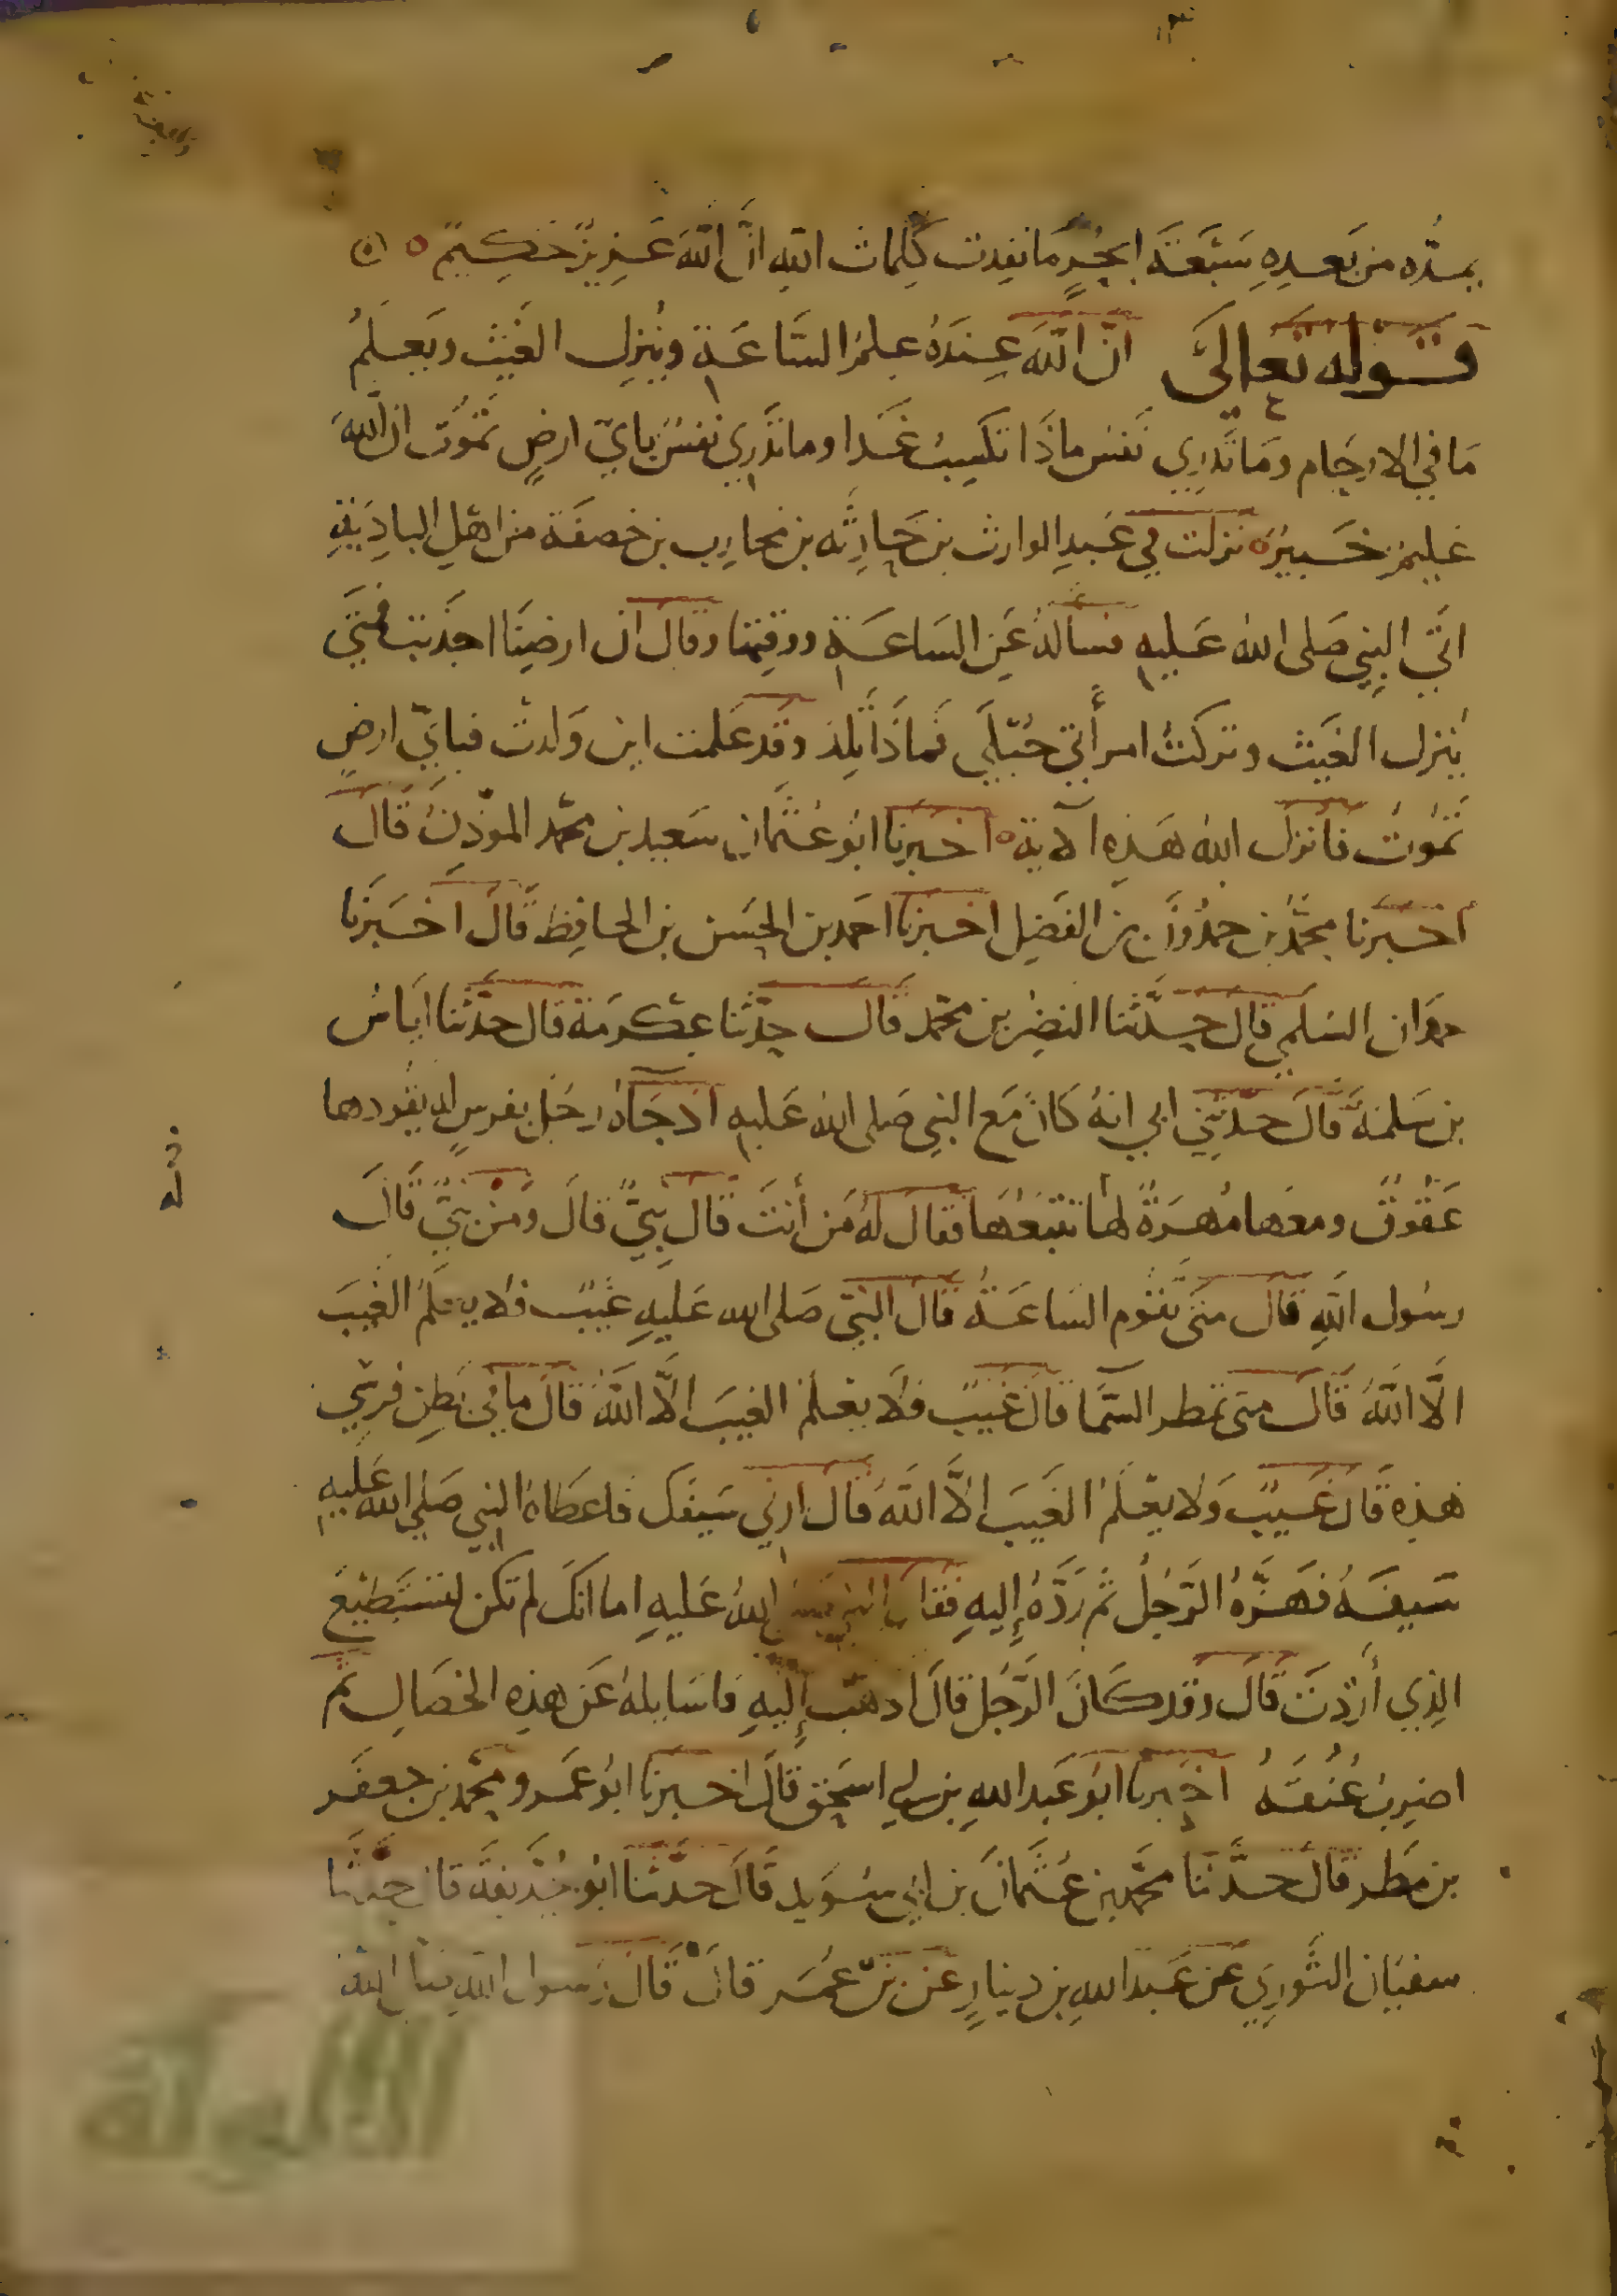 يمدّه من بَعدِهِ سَبْعَةَ ابحُرٍ مَا نفِدت كَلِمات اللهِ انَّ اللهَ عَزِيزٌ حَكِيمٌ ه
قوله تعالىَ انّ اللهَ عِندَهُ عِلمُ السَّاعَةِ ويُنزِل الغَيثَ ويَعلَمُ
مَا في الارحَام ومَا تَدرِي نَفسٌ ماذَا تكسِبُ غَدا وما تَدرِي نفسٌ بايّ ارضٍ تَمُوت ان اللهَ
عَليمٌ خَبيرٌ ه نزلت في عَبدِ الوارث بن حَارِثَه بن محارِب بن خصفَة من اهلِ البادِيَةِ
اتَى النبِي صَلى اللهُ عَليهِ فسالهُ عَن السَاعَةِ ووقتِها وقال ان ارضَنَا اجدَبت فمتَى
يَنزل الغَيث وتركتُ امرأتي حُبْلَى فَماذَا تَلِدُ وقَد عَلمت اين وَلدتُ فبايّ ارضٍ
تَمُوتُ فانزل اللهُ هَذِهِ الاية ه اخبرنا ابُو عُثمَان سَعِيد بن محمّد الموذِنُ قَالَ
اخبَرنا محمَّدُ بن حمدُونَ بن الفَضِل اخبرنا احمَد بن الحَسن بن الحافِظ قَالَ اخبَرنَا
حمدَان السُلمي قال حدَّثنا النضرِ بن محمّد قال حدّثنا عِكرمَة قال حدّثنا ايَاسُ
بن سَلمَة قَالَ حدّثني ابي انهُ كَانَ مَع النبِي صَلى اللهُ عَليهِ اذ جَآهُ رجُل بفرسٍ له يقُودها
عَقُوقٌ ومعَها مُهرَةٌ لها تتبَعُهَا فقال لهُ مَن أنتَ قال نبِيٌّ قالَ ومَن نبِيٌّ قَالَ
رسُول اللهِ قالَ متَى تقُوم السَاعَةُ قالَ النبِيّ صَلى الله عَليهِ غَيبٌ فلا يعلَمُ الغَيبَ
الَّا اللهُ قَالَ متى تمطر السَّمَا قالَ غَيبٌ فلَا يعلَمُ الغيبَ الَّا اللهُ قالَ ما في بَطنِ فرسِي
هَذِهِ قَالَ غَيبٌ وَلا يعلَمُ الغَيبَ الَّا اللهَ قال ارِني سَيفَك فاعطَاهُ النبِي صَلى اللهُ عَليهِ
سَيفَهُ فَهَزَّهُ الرَّجُلُ ثُم رَدَّهُ إِليهِ فقال النبي اللهُ عَليهِ اما انكَ لم تكن لتستَطيعَ
الذِي أَردتَ قَالَ وقد كَانَ الرَّجُل قالَ اذهَب إِليهِ فاسَايلهُ عَن هذِهِ الخصَالِ ثُم
اضرِبُ عُنُقَهُ اخبَرنا ابُو عَبد اللهِ بن ابي اسحٰق قَالَ اخبرنا ابُو عَمرو محمّد بن جعفَر
بن مَطر قالَ حدَّثنَا محمّد بن عُثمَانَ بن ابي سُوَيد قَالَ حدَّثنَا ابُو حُذَيفَة قال حدثنا
سفيَان الثَورِي عَن عَبد اللهِ بن دينارٍ عَن بن عُمَر قالَ قَالَ رَسول اللهِ صلى الله
الألوكة